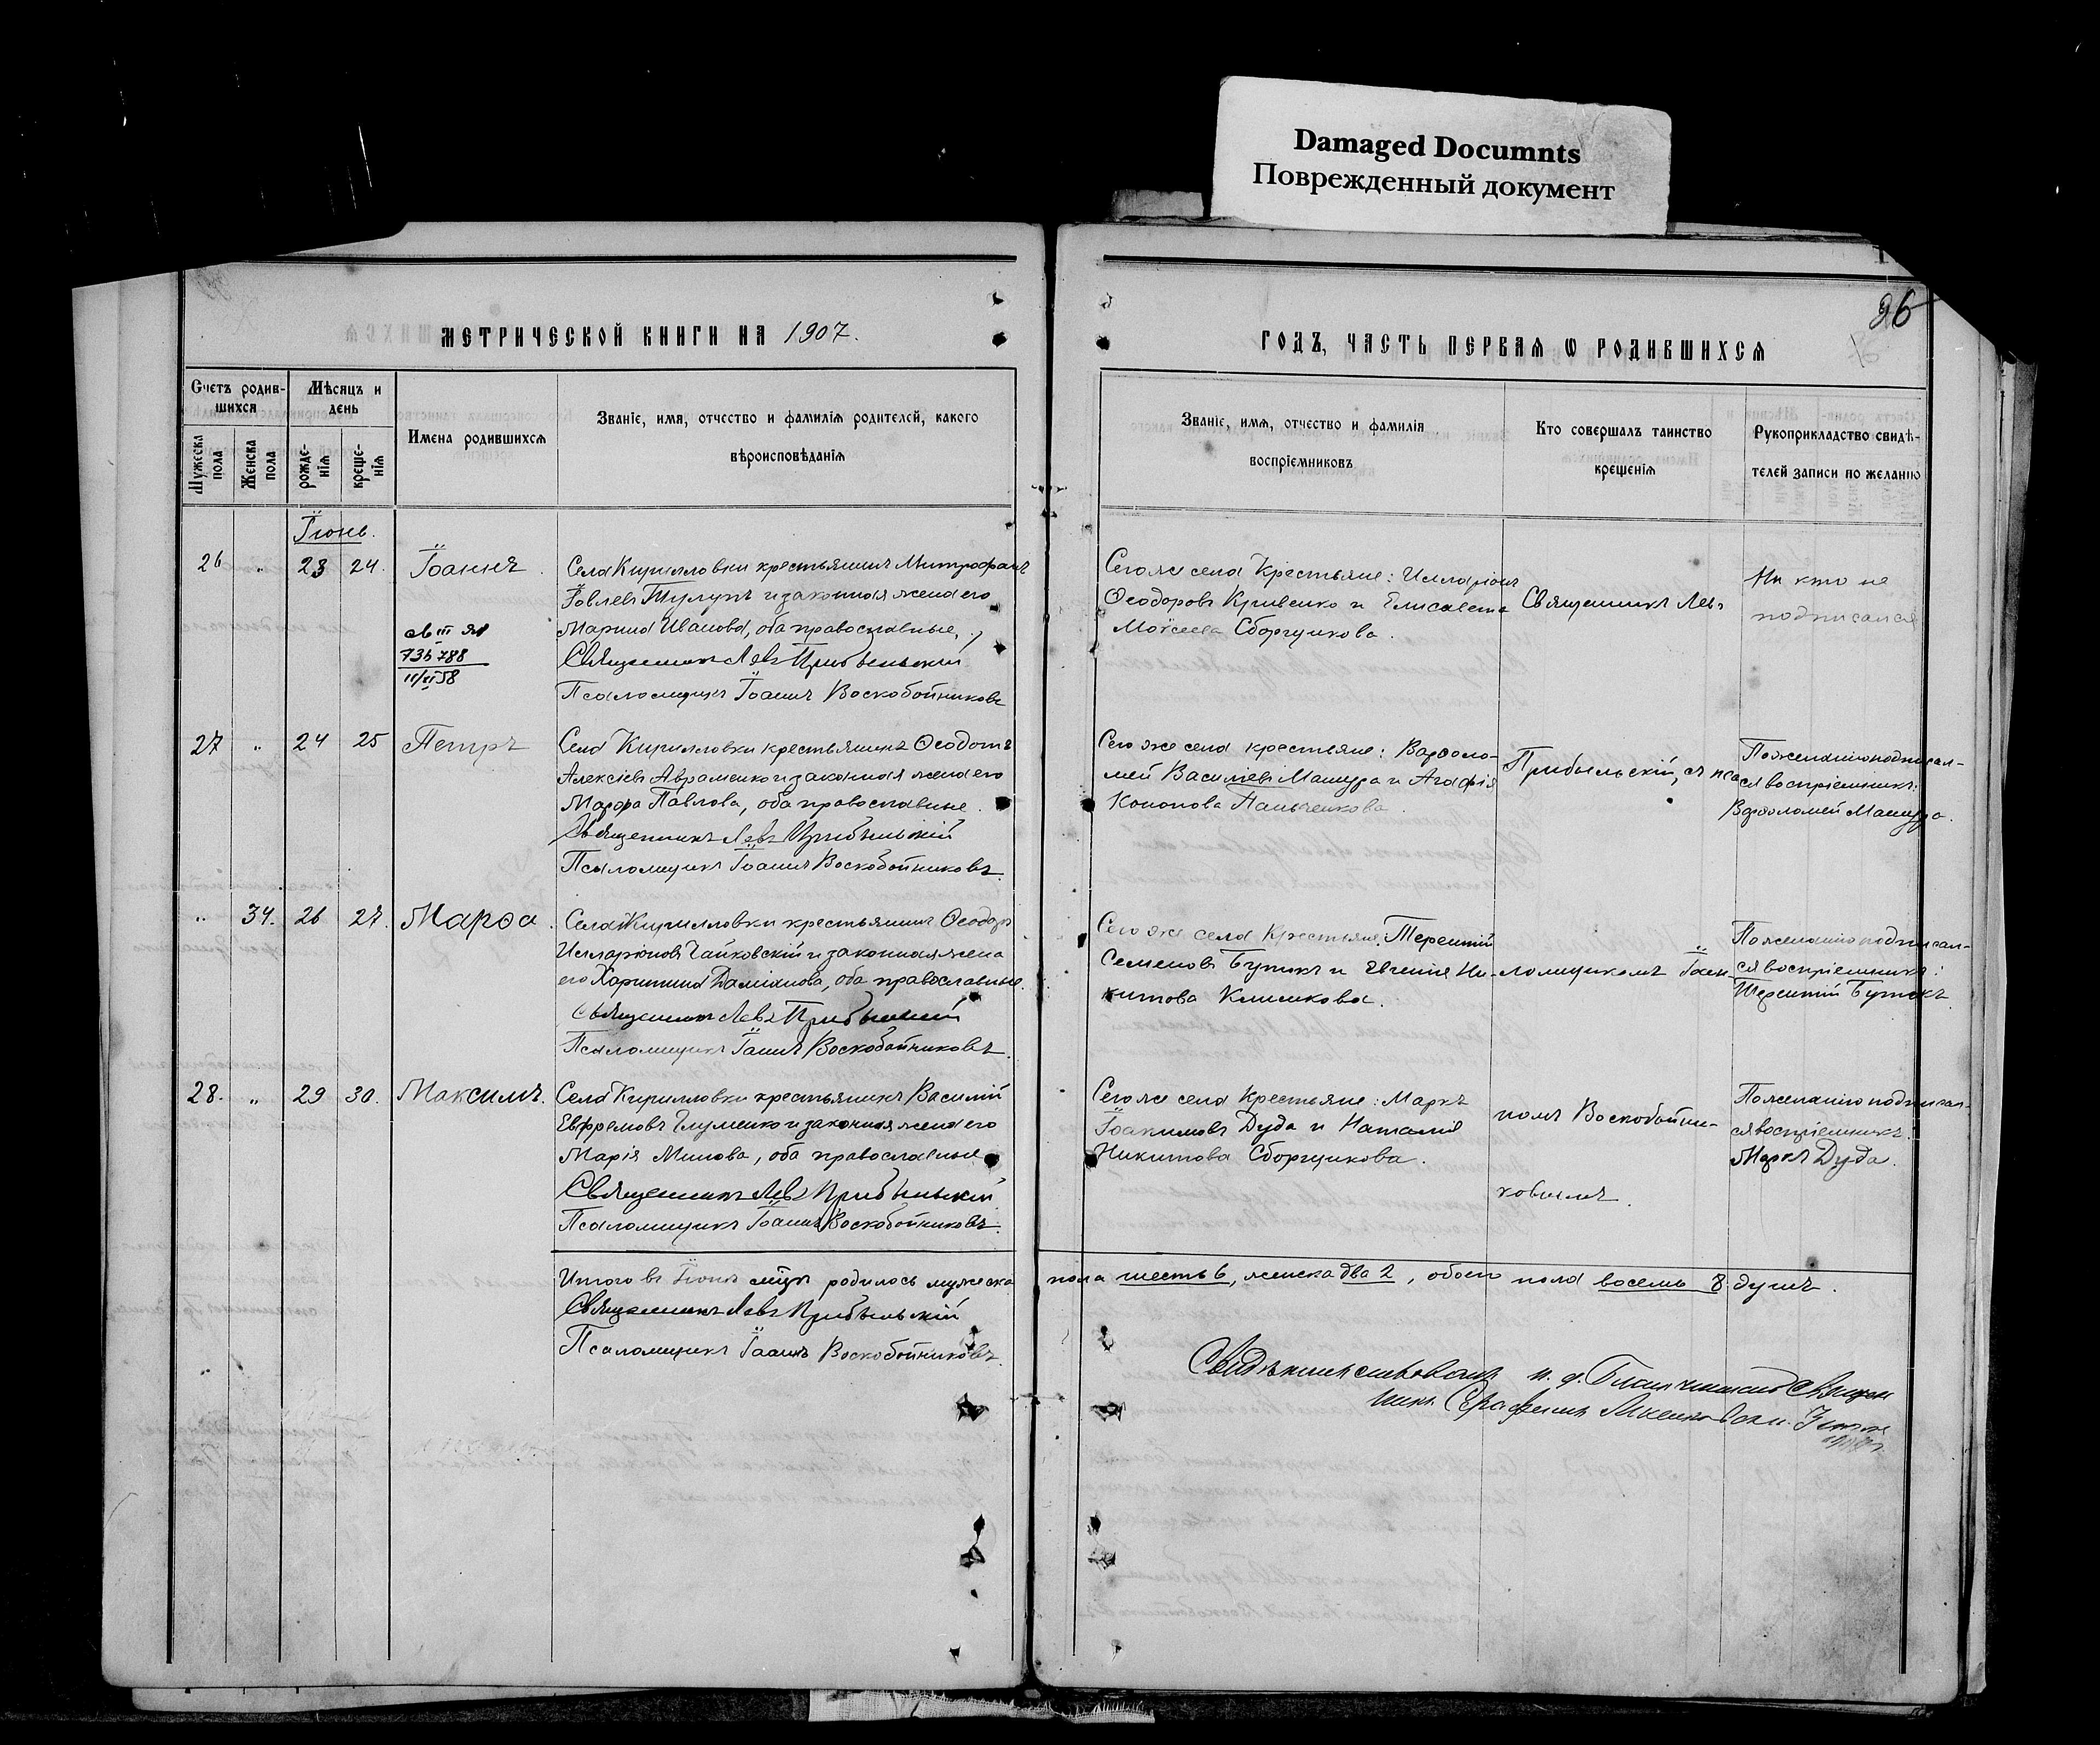 Damaged Documnts
Поврежденный документ
26
МЕТРИЧЕСКОЙ КНИГИ НА 1907.
ГОДЪ, ЧАСТЬ ПЕРВАЯ Ѡ РОДИВШИХСЯ
Счетъ родив-
шихся
Мужеска пола
Женска пола
Мѣсяцъ и
день
рожде-
нія
креще-
нія
Имена родившихся
Званіе, имя, отчество и фамилія родителей, какого
вѣроисповѣданія
Званіе, имя, отчество и фамилія
воспріемниковъ
Кто совершалъ таинство
крещенія
Рукоприкладство свидѣ-
телей записи по желанію
Іюнь.
26 " 23 24. Іоаннъ.
III ЯЛ
735788
11/XI 58
Села Кирилловки крестьянинъ Митрофанъ
Іовлевъ Тулупъ и законная жена его
Марина Иванова, оба православные.
Священникъ Левъ Прибыльскій
Псаломщикъ Іоаннъ Воскобойниковъ
Сего же села Крестьяне: Илларіонъ
Ѳеодоровъ Кривенко и Елисавета
Моѵсеева Сборщикова.
Священникъ Левъ
Ни кто не
подписался
27 " 24 25 Петръ
Села Кирилловки крестьянинъ Ѳеодотъ
Алексіевъ Авраменко и законная жена его
Марѳа Павлова, оба православные.
Священникъ Левъ Прибыльскій
Псаломщикъ Іоаннъ Воскобойниковъ.
Сего же села крестьяне: Варѳоло-
мей Василіевъ Машура и Агафія
Кононова Панченкова.
Прибыльскій, съ пса-
По желанію подписал-
ся воспріемникъ:
Варѳоломей Машура.
" 34. 26 27. Марѳа.
Села Кирилловки крестьянинъ Ѳеодоръ
Илларіоновъ Чайковскій и законная жена
его Харитина Даміанова, оба православные.
Священникъ Левъ Прибыльскій
Псаломщикъ Іоаннъ Воскобойниковъ.
Сего же села Крестьяне: Терентій
Семеновъ Бутокъ и Евгенія Ни-
китова Климкова.
ломщикомъ Іоан-
По желанію подписал-
ся воспріемникъ:
Терентій Бутокъ
28. " 29 30. Максимъ.
Села Кирилловки крестьянинъ Василій
Евфремовъ Глуменко и законная жена его
Марія Минова, оба православные
Священникъ Левъ Прибыльскій
Псаломщикъ Іоаннъ Воскобойниковъ.
Сего же села Крестьяне: Маркъ
Іоакимовъ Дуда и Наталія
Никитова Сборщикова.
номъ Воскобойни-
ковымъ.
По желанію подписал-
ся воспріемникъ:
Маркъ Дуда.
Итого въ Іюнѣ мѣцѣ родилось мужеска пола шесть 6, женска два 2, обоего пола восемь 8 душъ.
Священникъ Левъ Прибыльскій
Псаломщикъ Іоаннъ Воскобойниковъ.
Свидѣтельствовалъ и. д. Благочиннаго Священ
никъ Серафимъ